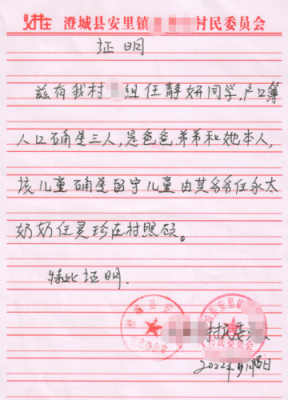 澄城县安里镇 村民委员会
证明
兹有我村 组任静妍同学,户口簿
人口确是三人,是爸爸,弟弟和她本人,
该儿童确是留守儿童由其爷爷任永太
奶奶任灵珍在村照顾。
特此证明.
村民委
村民委员会
2022年